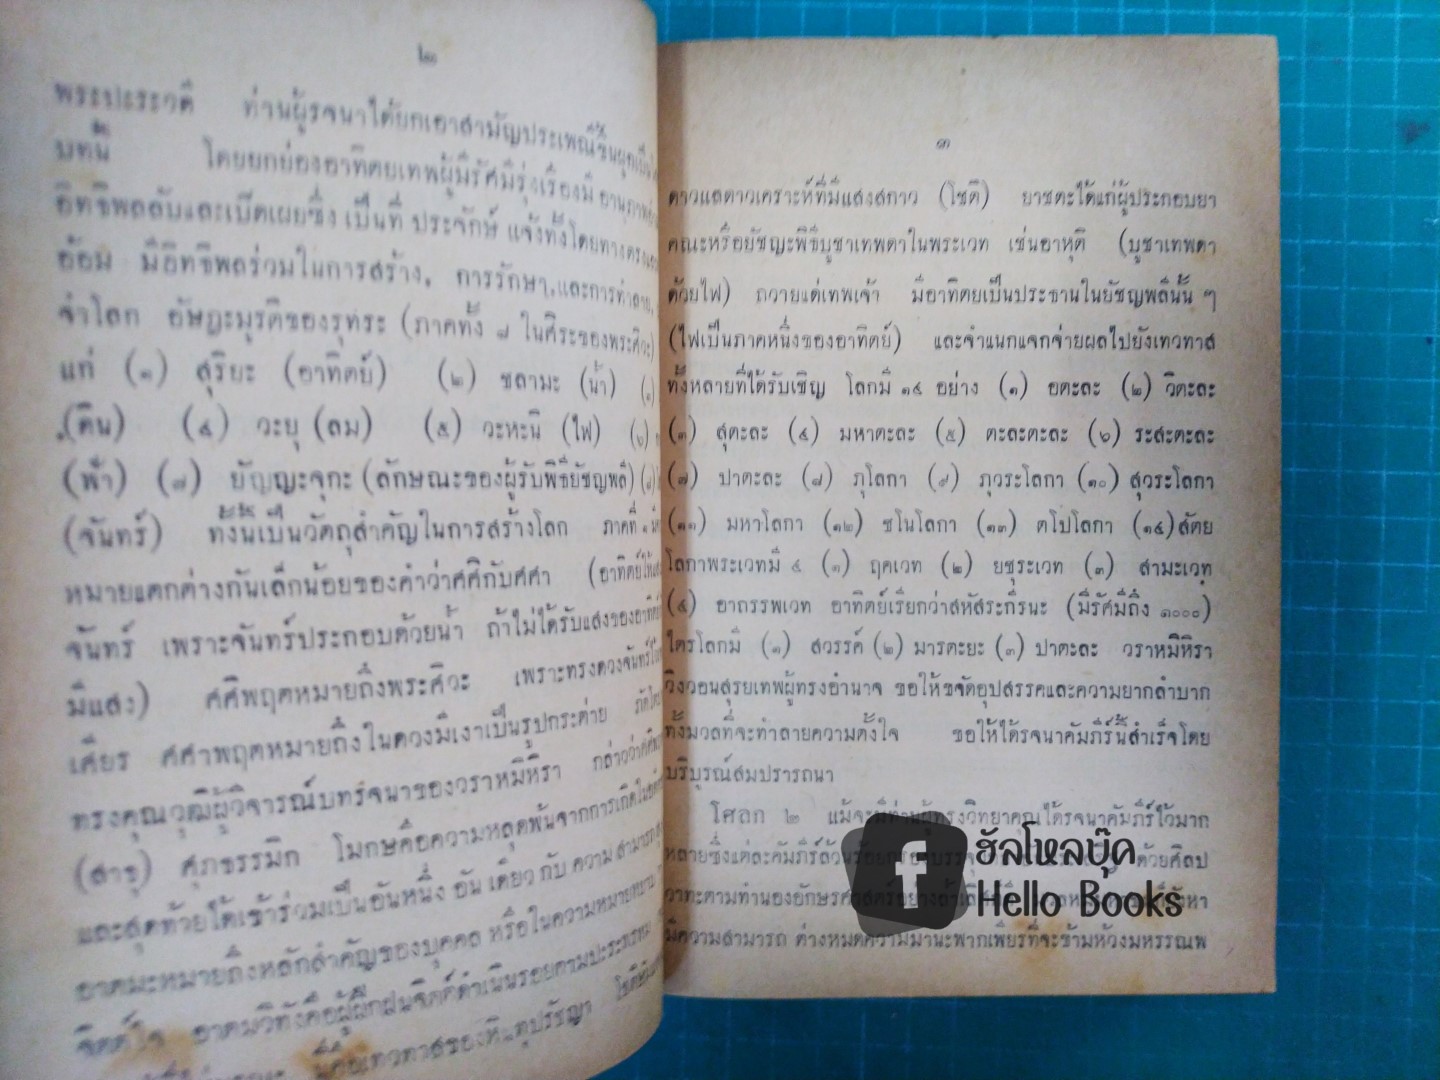 ๒
พระปะระวดี ท่านผู้รจนาได้ยกเอาสามัญประเพณีขึ้นผูกเป็น
บทนี้ โดยยกย่องอาทิตยเทพผู้มีรัศมีรุ่งเรืองมี อานุภาพ
อิทธิพลลับและเปิดเผยซึ่ง เป็นที่ ประจักษ์ แจ้งทั้งโดยทางตรงและ
อ้อม มีอิทธิพลร่วมในการสร้าง, การรักษา,และการทำลาย,
จำโลก อัษฎะมุรติของรุทระ (ภาคทั้ง ๘ ในศิระของพระศิวะ)
แก่ (๑) สุริยะ (อาทิตย์) (๒) ชลามะ (น้ำ) (๓)
(ดิน) (๔) วะยุ (ลม) (๕) วะหะนิ (ไฟ) (๖)
(ฟ้า) (๗) ยัญญะจุกะ (ลักษณะของผู้รับพิธียัชญพลี) (๘)
(จันทร์) ทั้งนี้เป็นวัตถุสำคัญในการสร้างโลก ภาคที่ ๑
หมายแตกต่างกันเล็กน้อยของคำว่าศศิกับศศา (อาทิตย์ให้แสง
จันทร์ เพราะจันทร์ประกอบด้วยน้ำ ถ้าไม่ได้รับแสงของอาทิตย์
มีแสง) ศศิพฤตหมายถึงพระศิวะ เพราะทรงดวงจันทร์
เศียร ศศาพฤตหมายถึงในดวงมีเงาเป็นรูปกระต่าย
ทรงคุณวุฒิผู้วิจารณ์บทรจนาของวราหมิหิรา กล่าวว่า
(สาธุ) ศุภธรรมิก โมกษคือความหลุดพ้นจากการเกิด
และสุดท้วยได้เข้าร่วมเป็นอันหนึ่ง อัน เดียว กับ ความ สามารถ
อาตมะหมายถึงหลักสำคัญของบุคคล หรือในความหมายหยาบ
จิตต์ใจ อาตมวิทังคือผู้ฝึกฝนจิตต์ดำเนินรอยตามปะระพรหม
เทวทาสของหินทูปรัชญา
๓
ดาวแลดาวเคราะห์ที่มีแสงสกาว (โชติ) ยาชตะได้แก่ผู้ประกอบยา
คณะหรือยัชญะพิธีบูชาเทพดาในพระเวท เช่นอาหุติ (บูชาเทพดา
ด้วยไฟ) ถวายแด่เทพเจ้า มีอาทิตยเป็นประธานในยัชญพลีนั้น ๆ
(ไฟเป็นภาคหนึ่งของอาทิตย์) และจำแนกแจกจ่ายผลไปยังเทวทาส
ทั้งหลายที่ได้รับเชิญ โลกมี ๑๔ อย่าง (๑) อตะละ (๒) วิตะละ
(๓) สุตะละ (๔) มหาตะละ (๕) ตะละตะละ (๖) ระสะตะละ
(๗) ปาตะละ (๘) ภุโลกา (๙) ภุวระโลกา (๑๐) สุวระโลกา
(๑๑) มหาโลกา (๑๒) ชโนโลกา (๑๓) ตโปโลกา (๑๔)สัตย
โลกาพระเวทมี ๔ (๑) ฤคเวท (๒) ยชุระเวท (๓) สามะเวท
(๔) อาถรรพเวท อาทิตย์เรียกว่าสหัสระกิรนะ (มีรัศมีถึง ๑๐๐๐)
ไตรโลกมี (๑) สวรรค์ (๒) มารตะยะ (๓) ปาตะละ วราหมิหิรา
วิงวอนสุรยเทพผู้ทรงอำนาจ ขอให้ขจัดอุปสรรคและความยากลำบาก
ทั้งมวลที่จะทำลายความตั้งใจ ขอให้ได้รจนาคัมภีร์นี้สำเร็จโดย
บริบูรณ์สมปรารถนา
โศลก ๒ แม้จะมีท่านผู้ทรงวิทยาคุณได้รจนาคัมภีร์ไว้มาก
หลายซึ่งแต่ละคัมภีร์ล้วน ด้วยศิลป
วาทะตามทำนองอักษรศาสตร์
มีความสามารถ ต่างหมดความมานะพากเพียรที่จะข้ามห้วงมหรรณพ
f ฮัลโหลบุ๊ค
Hello Books